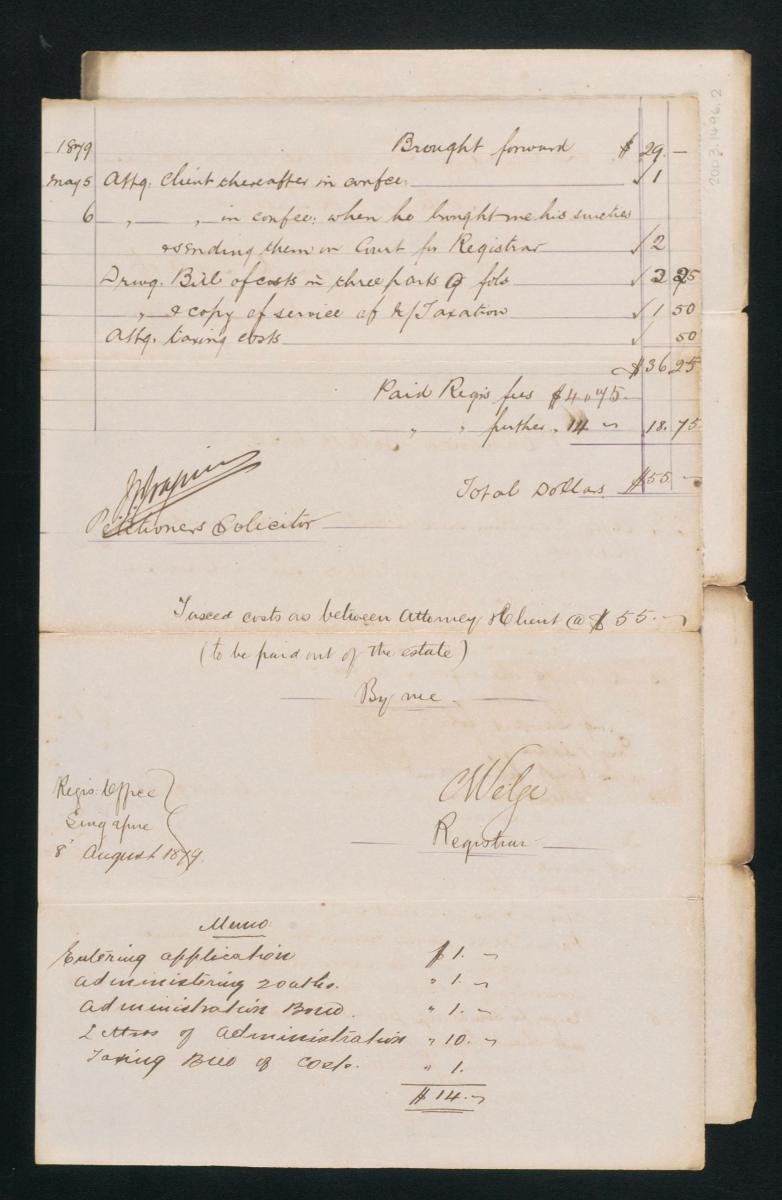 2003.1496.2
1879 Brought forward $ 29. —
May 5 Attg. Client thereafter in confce. √ 1
6 " " in confce: when he brought me his sureties
& sending them on Court for Registrar √ 2
Drwg. Bill of costs in three parts 9 fols √ 2 25
" & copy of service of N/Taxation √ 1 50
Attg. taxing costs √ 50
$36 25
Paid Regis fees $4.75
" " further . 14 – 18. 75
Total Dollars $55 –
Petitioners Solicitor
Taxed costs as between Attorney & Client @ $ 55. –
(to be paid out of the estate)
By me
Regis: Office
Singapore
8' August 1879.
Registrar
Memo
Entering application $ 1. –
Administering 2 oaths. " 1. –
Administration Bond. " 1. –
Letters of Administration " 10. –
Taxing Bill of Costs. " 1.
$ 14. –